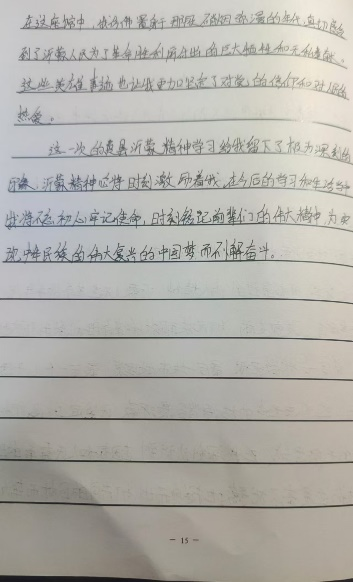 在这座馆中，我仿佛置身于那段硝烟弥漫的年代，真切感受
到了沂蒙人民为了革命胜利所付出的巨大牺牲和无私奉献。
这些英雄事迹也让我更加坚定了对党的信仰和对人民的
热爱。
这一次的费县沂蒙精神学习给我留下了极为深刻的
印象，沂蒙精神也将时刻激励着我，在今后的学习和生活当中
我将不忘初心牢记使命，时刻铭记前辈们的伟大精神，为实
现中华民族的伟大复兴的中国梦而不懈奋斗。
- 15 -